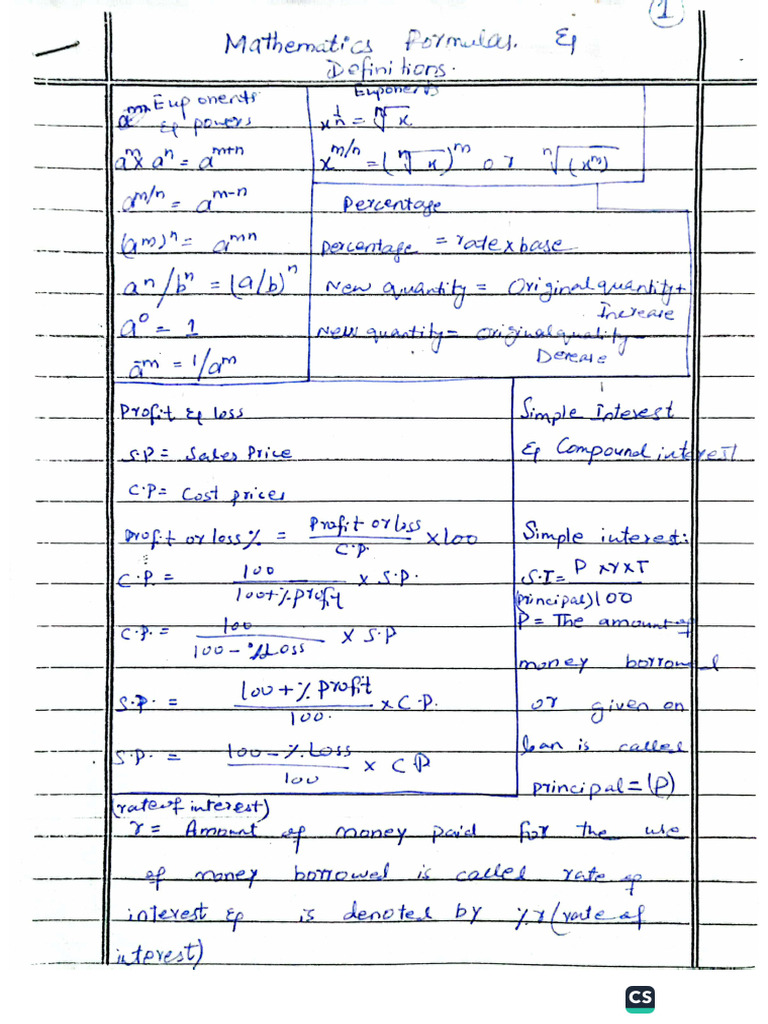 1
Mathematics Formulas &
Definitions.
Exponents
& powers
a^m x a^n = a^(m+n)
a^m/n = a^(m-n)
(am)^n = a^mn
a^n/b^n = (a/b)^n
a^0 = 1
a^-m = 1/a^m
Exponents
x^(1/n) = ⁿ√x
x^(m/n) = (ⁿ√x)^m or ⁿ√(x^m)
Percentage
Percentage = rate x base
New quantity = Original quantity +
Increase
New quantity = Original quality -
Derease
Profit & loss
S.P = Sales Price
C.P = Cost prices
Profit or loss % = Profit or loss / C.P. x 100
C.P. = 100 / 100+% profit x S.P.
C.P. = 100 / 100 - % Loss x S.P
S.P. = 100 + % profit / 100. x C.P.
S.P. = 100 - % Loss / 100 x C P
Simple Interest
& Compound interest
Simple interest:
S.I = P x r x T / 100
(principal)
P = The amount of
money borrowed
or given on
loan is called
principal = (P)
(rate of interest)
r = Amount of money paid for the use
of money borrowed is called rate of
interest & is denoted by % r (rate of
interest)
CS